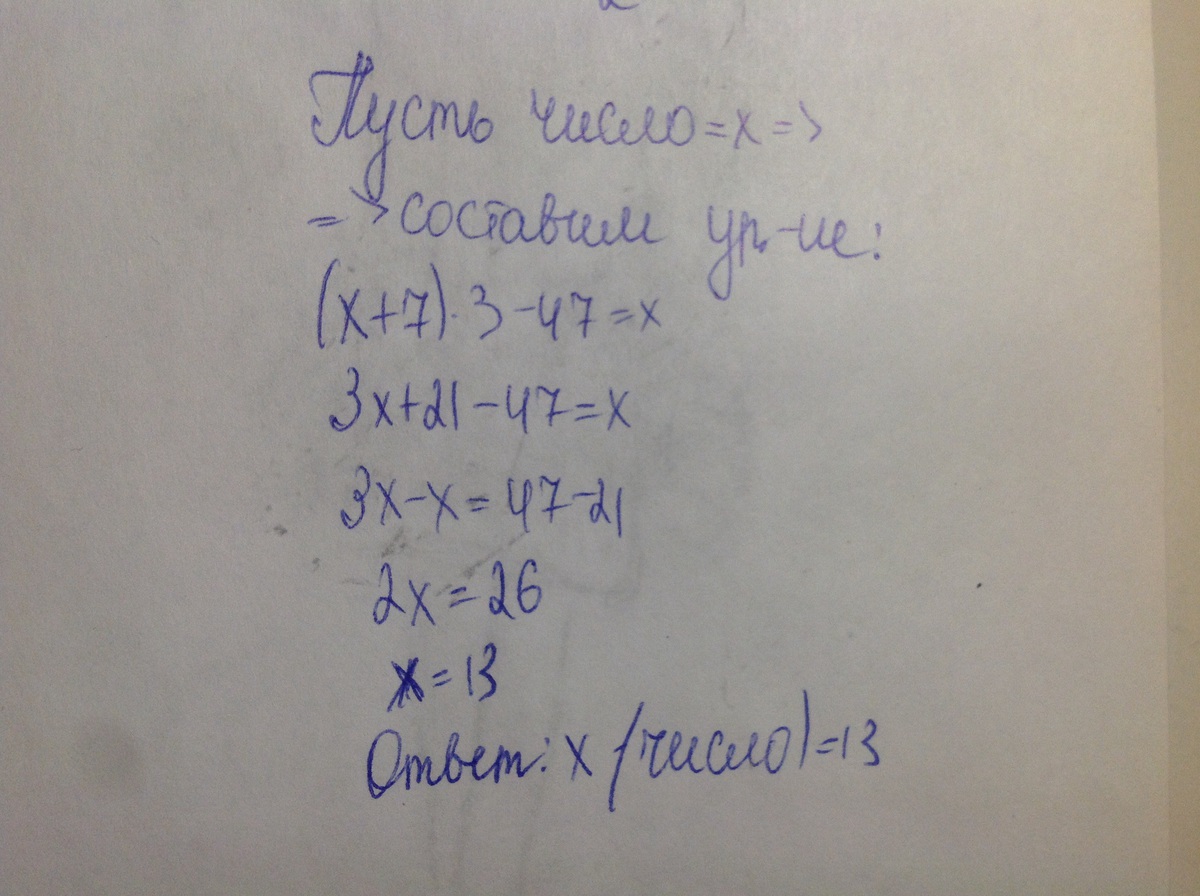 Пусть число=x=>
=>составим ур-ие:
(x+7)·3-47=x
3x+21-47=x
3x-x=47-21
2x=26
x=13
Ответ: x (число)=13